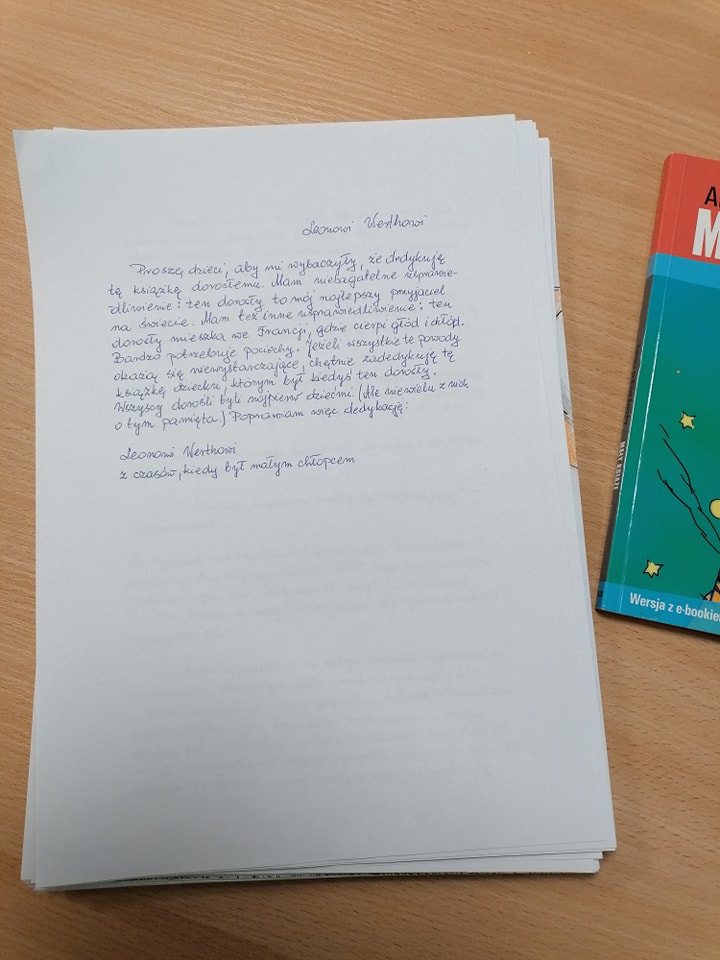 Leonowi Werthowi
Proszę dzieci, aby mi wybaczyły, że dedykuję
tę książkę dorosłemu. Mam niebagatelne usprawie-
dliwienie: ten dorosły to mój najlepszy przyjaciel
na świecie. Mam też inne usprawiedliwienie: ten
dorosły mieszka we Francji, gdzie cierpi głód i chłód.
Bardzo potrzebuje pociechy. Jeżeli wszystkie te powody
okażą się niewystarczające, chętnie zadedykuję tę
książkę dziecku, którym był kiedyś ten dorosły.
Wszyscy dorośli byli najpierw dziećmi. (Ale niewielu z nich
o tym pamięta.) Poprawiam więc dedykację:
Leonowi Werthowi
z czasów, kiedy był małym chłopcem
A
M
MAŁY KSIĄŻĘ
Wersja z e-bookie